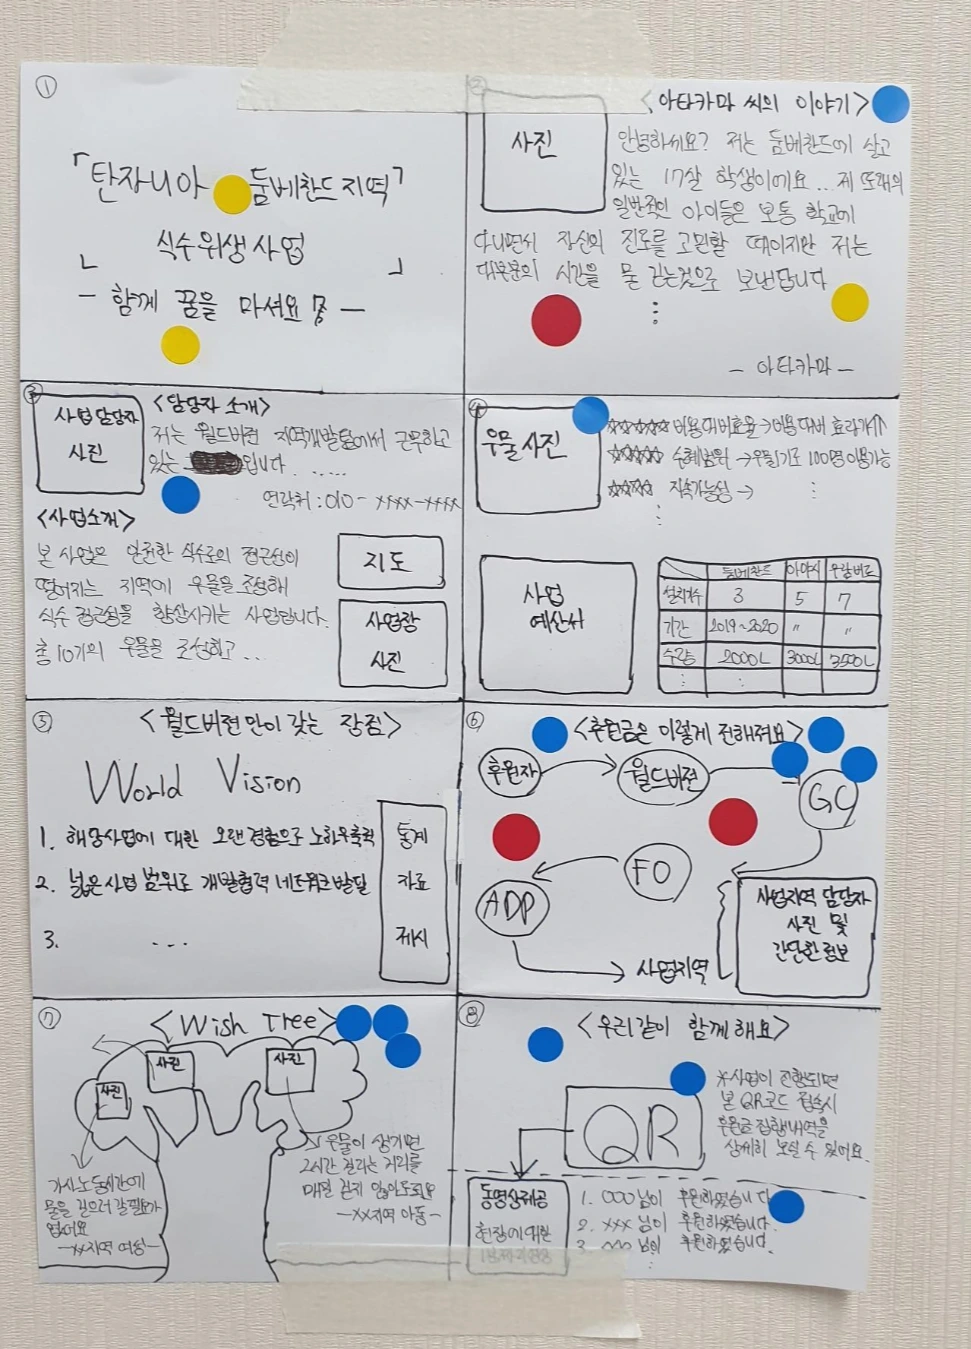 ①
「탄자니아 둠베찬드지역
식수위생사업」
- 함께 꿈을 마셔요 -
②
<아타카마 씨의 이야기>
사진
안녕하세요? 저는 둠베찬드에 살고
있는 17살 학생이에요... 제 또래의
일반적인 아이들은 보통 학교에
다니면서 자신의 진로를 고민할 때이지만 저는
대부분의 시간을 물 긷는것으로 보낸답니다
- 아타카마 -
③
사업담당자
사진
<담당자 소개>
저는 월드비전 지역개발팀에서 근무하고
있는 입니다. .....
연락처 : 010 - xxxx-xxxx
<사업소개>
본 사업은 안전한 식수로의 접근성이
떨어지는 지역에 우물을 조성해
식수 접근성을 향상시키는 사업입니다.
총 10기의 우물을 조성하고...
지도
사업장
사진
④
우물사진
☆☆☆☆☆ 비용대비효율 → 비용 대비 효과가↑
☆☆☆☆ 수혜범위 → 우물1기로 100명 이용가능
☆☆☆☆ 지속가능성 →
사업
예산서
둠베찬드 우랑비로
설치개수 3 5 7
기간 2019~2020 " "
수량 2000L 3000L 3500L
⑤
<월드비전만이 갖는 장점>
World Vision
1. 해당사업에 대한 오랜경험으로 노하우축적
2. 넓은사업 범위로 개발협력 네트워크 발달
3. ...
통계
자료
제시
⑥
<후원금은 이렇게 전해져요>
후원자
월드비전
GC
FO
ADP
사업지역
사업지역 담당자
사진 및
간단한 정보
⑦
<Wish Tree>
사진
사진
사진
우물이 생기면
2시간 걸리는 거리를
매일 걷지 않아도돼요
-xx지역 아동-
가사노동시간에
물을 길으러 갈필요가
없어요
-xx지역 여성-
⑧
<우리같이 함께해요>
QR
*사업이 진행되면
본 QR코드 접속시
후원금 집행내역을
상세히 보실 수 있어요.
동영상제공
현장에 대한
1. ○○○님이 후원하였습니다
2. xxx님이 후원하였습니다.
3. 님이 후원하였습니다.